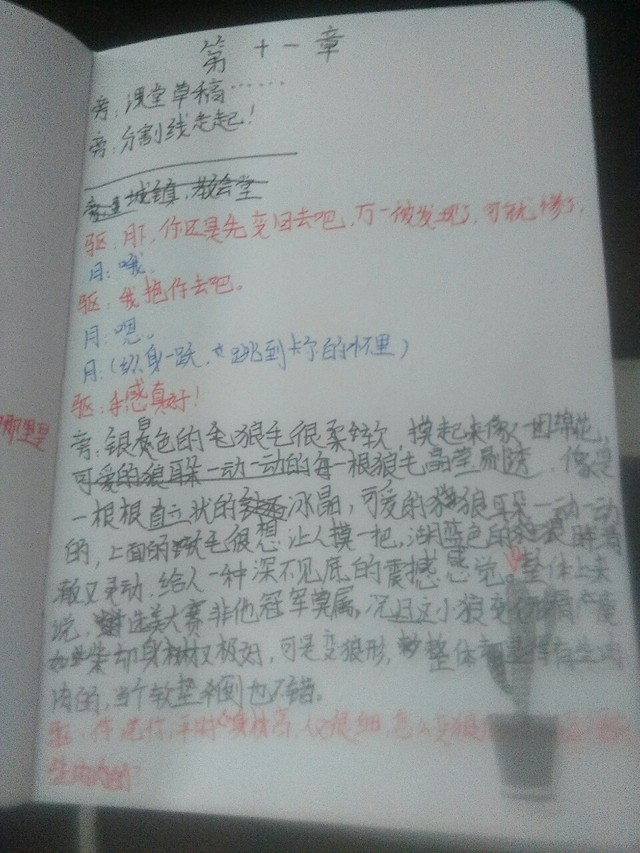 第十一章
旁：课堂草稿……
旁：分割线走起！
城镇，教会堂
驱：月下，你还是先变回去吧，万一被发现了，可就惨了。
月：哦。
驱：我抱你去吧。
月：嗯。
月：(纵身一跃，跳到卡尔的怀里)
驱：手感真好！
哪里是
旁：银色的毛狼毛很柔软，摸起来像一团绵花，
可爱的狼耳朵一动一动的每一根狼毛晶莹剔透，像是
一根根直立状的冰晶，可爱的狼耳朵一动一动
的，上面的绒毛很想让人摸一把，湖蓝色的狼眼清
澈又灵动，给人一种深不见底的震撼感觉。整体上来
说，选美大赛非他冠军莫属，况且这小狼变
身材又极好，可是变狼形，整体有些肉
肉的，当个软垫倒也不错。
驱：你说你，平时身材高，又很细，怎么变狼
生肉肉的？